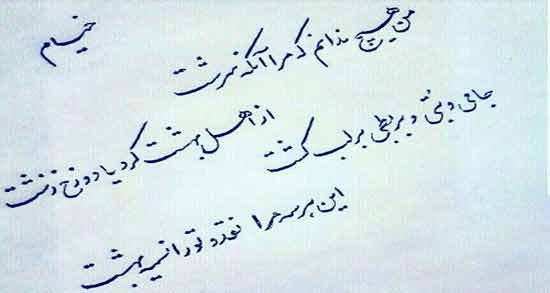 خیام
من هیچ ندانم که مرا آنکه سرشت
از اهل بهشت کرد یا دوزخ زشت
جامی و بتی و بربطی بر لب کشت
این هر سه مرا نقد و تو را نسیه بهشت